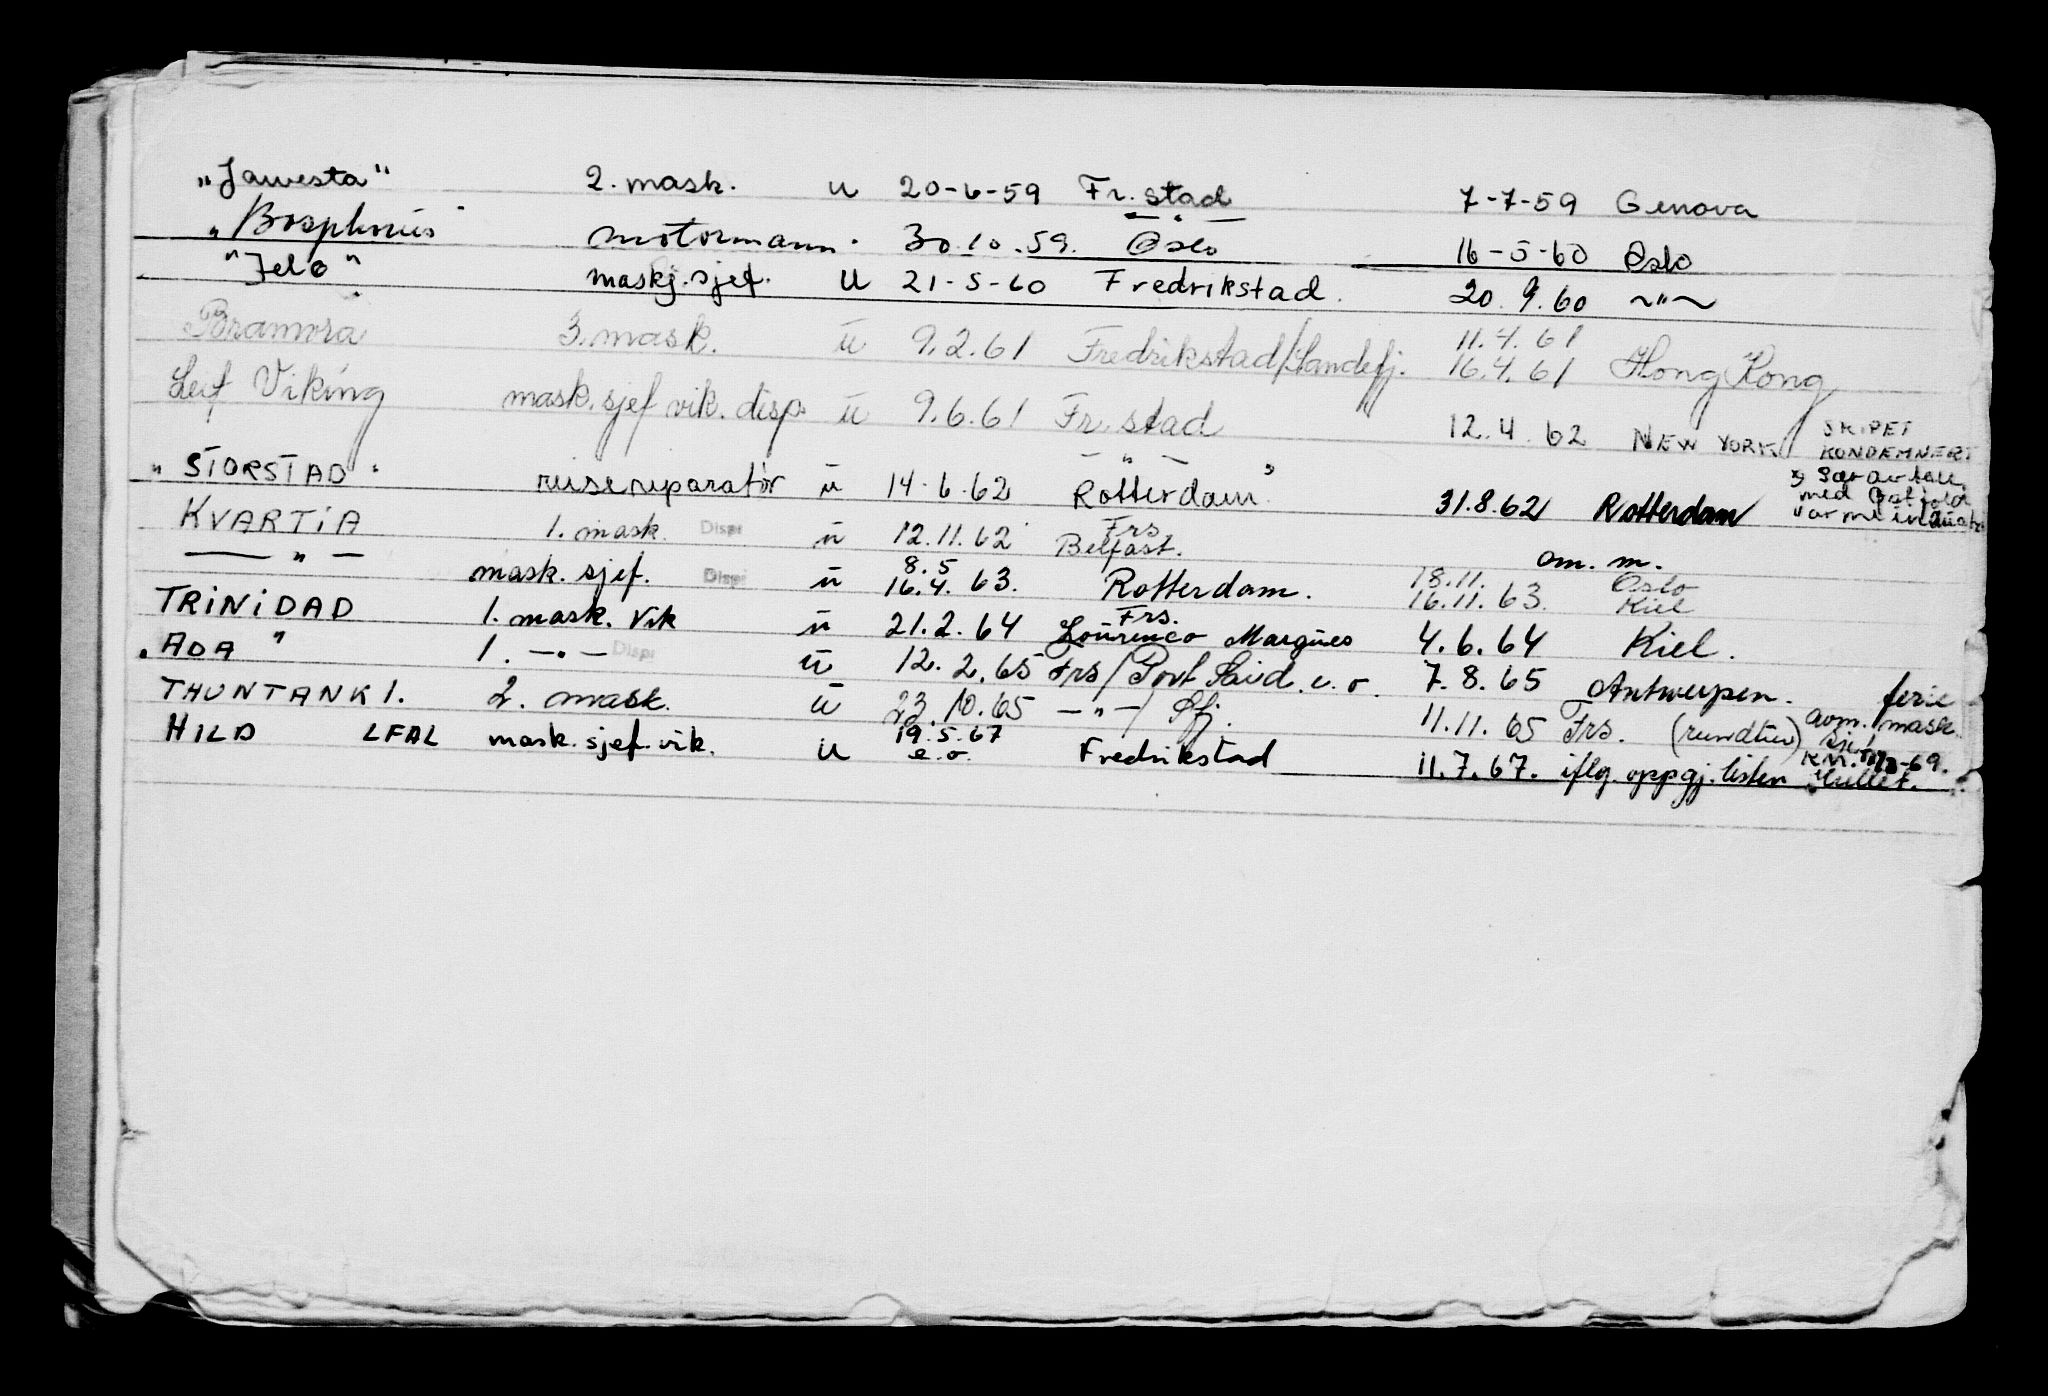 "Jawesta" 2. mask. u 20-6-59 Fr. stad 7-7-59 Genova
"Bosphorus" motormann. 30.10.59. — " — Oslo 16-5-60 Oslo
"Jelø" maskj. sjef. U 21-5-60 Fredrikstad. 20.9.60 ~"~
Bramora 3. mask. u 9.2.61 Fredrikstad/Sandefj. 11.4.61 16.4.61 Hong Kong
Leif Viking mask. sjef vik. disp. u 9.6.61 Fr. stad 12.4.62 NEW YORK SKIPET KONDEMNERT
"STORSTAD" reisereparatør u 14.6.62 — " — Rotterdam" 31.8.62 Rotterdam
KVARTIA 1. mask. Disp u 12.11.62 Frs Belfast. om. m.
— " — mask. sjef. Disp u 8.5 16.4.63. Rotterdam. 18.11. 16.11.63. Oslo Kiel
TRINIDAD 1. mask. Vik u 21.2.64 Frs. Lourenco Marques 4.6.64 Kiel.
"ADA" 1. — " — Disp u 12.2.65 Frs/Port Said e.o. 7.8.65 Antwerpen. ferie
THUNTANK 1. 2. mask. u 23.10.65 — " — / Sfj. 11.11.65 Frs. (rundtur) avm. mask. sjef
HILD LFAL mask. sjef. vik. u 19.5.67 e.o. Fredrikstad 11.7.67. iflg. oppgj. listen